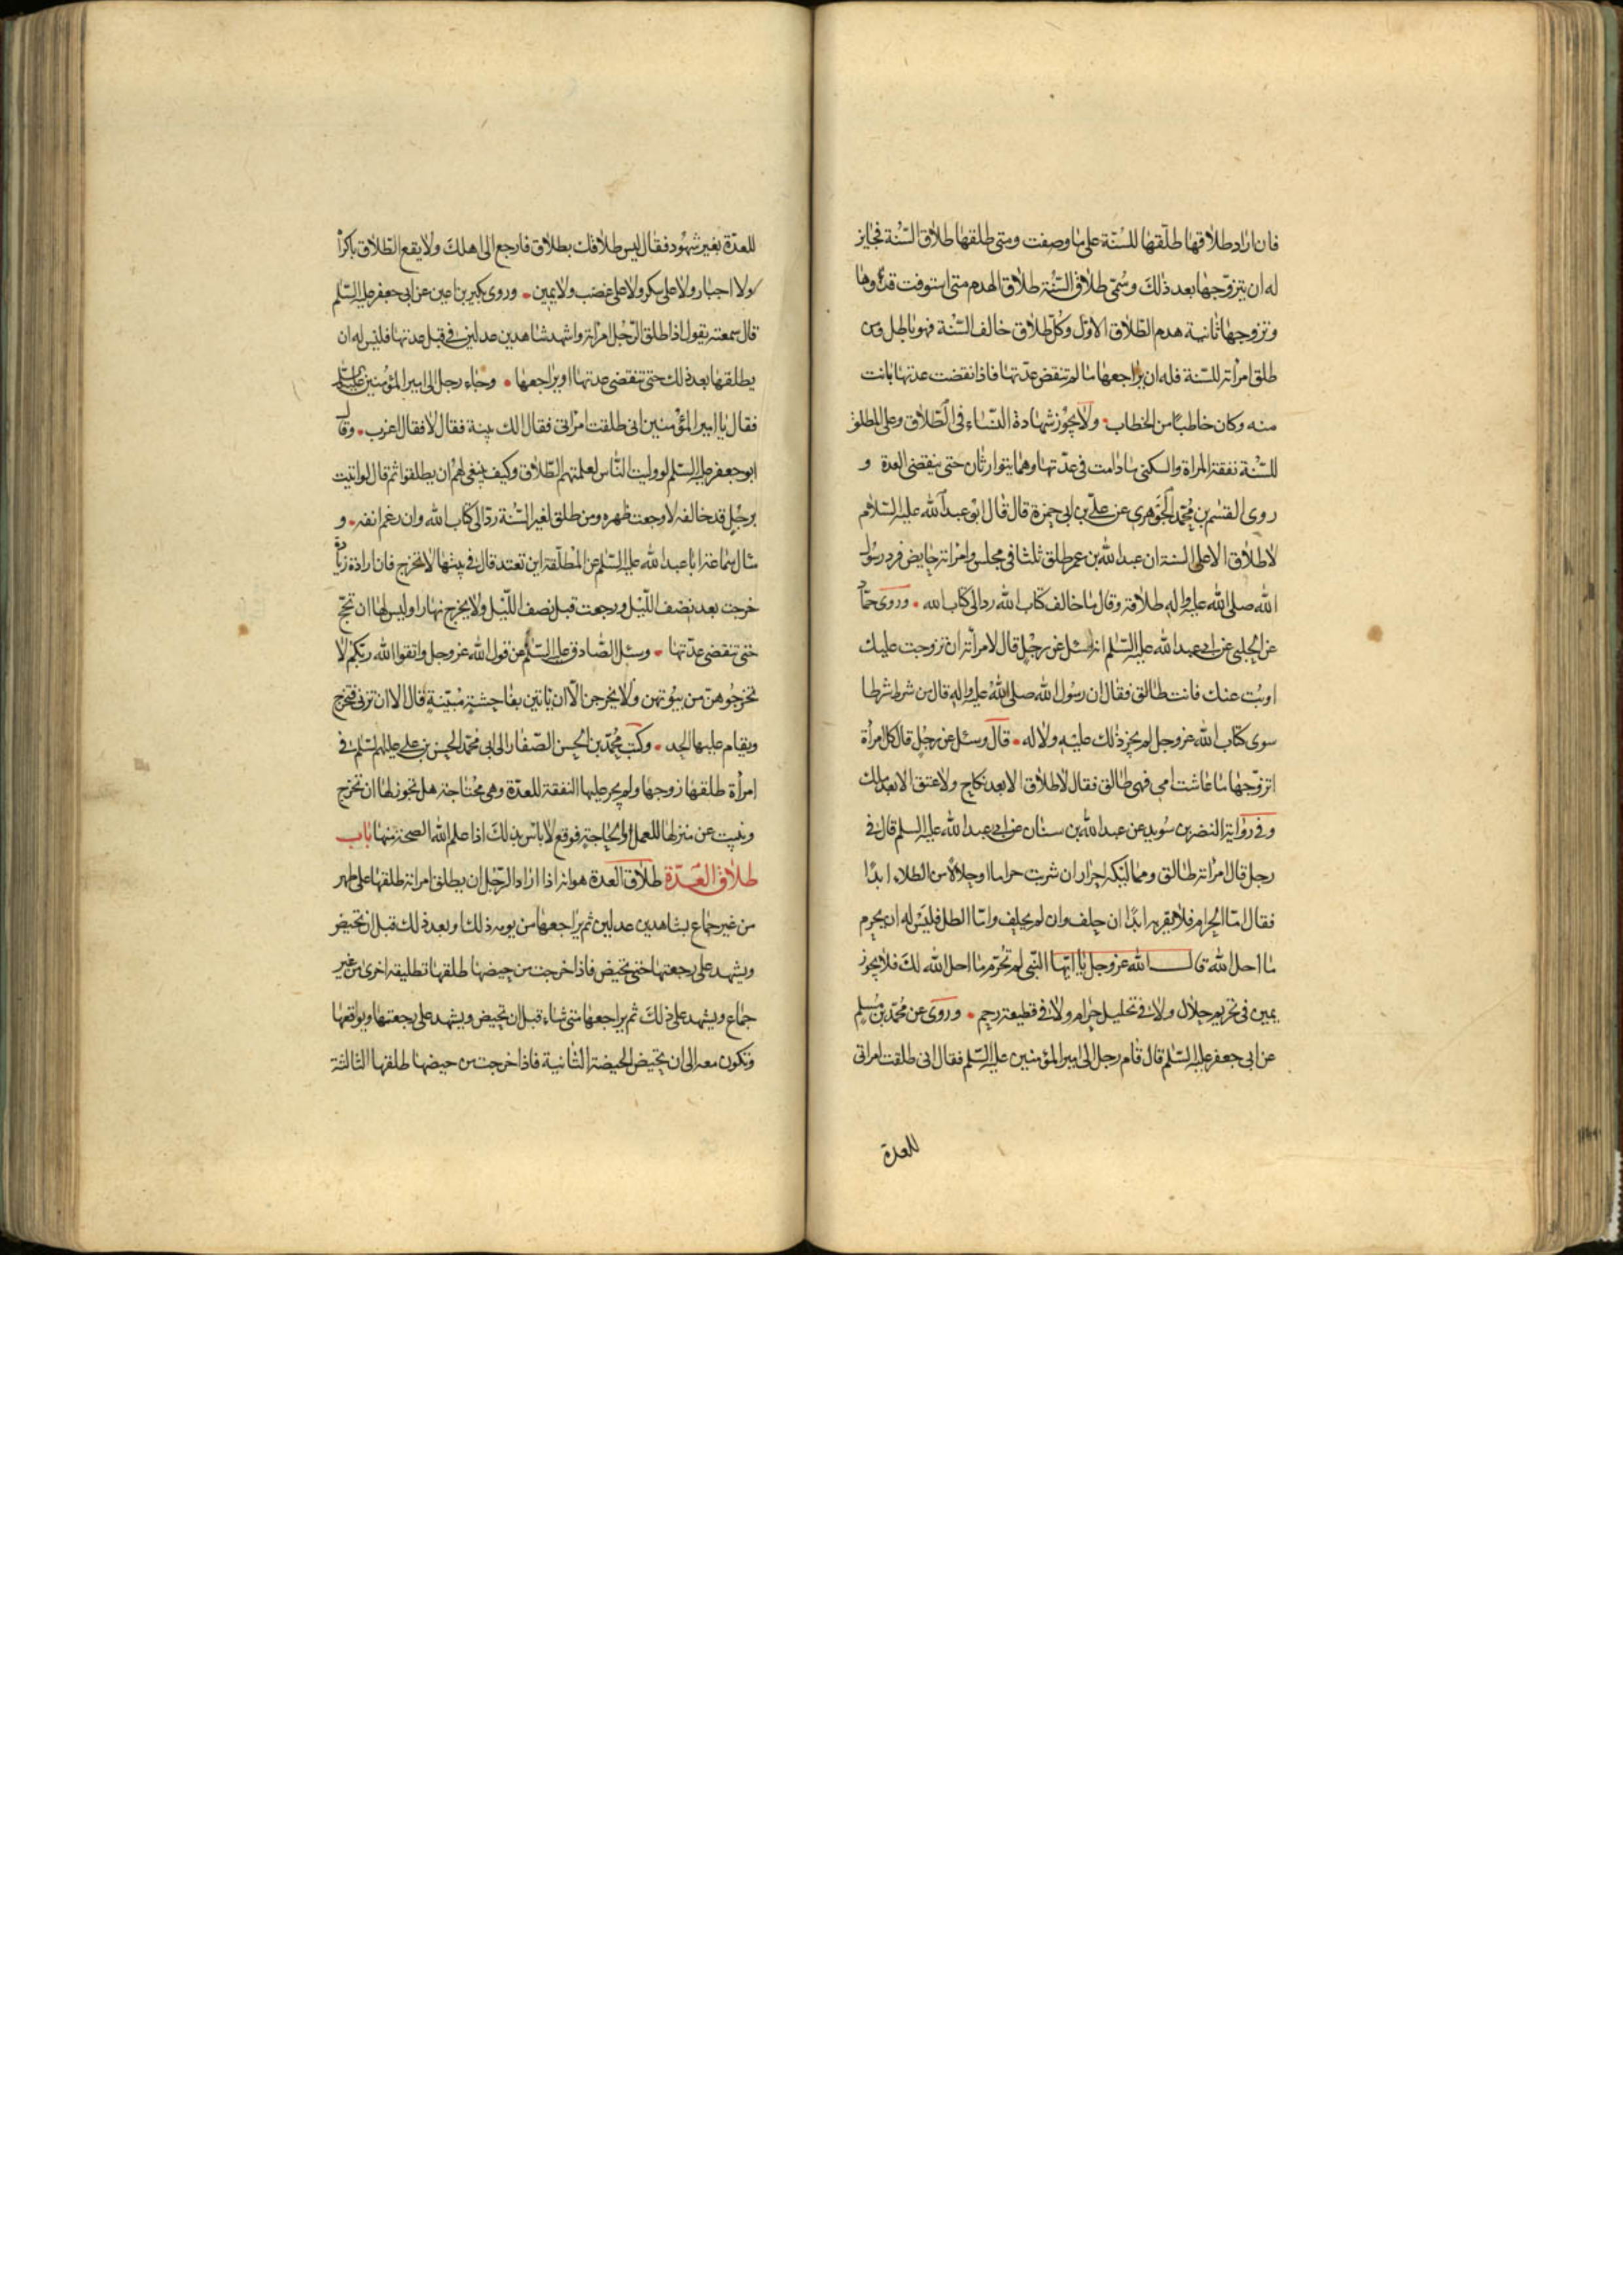 فان اراد طلاقها طلّقها للسُنّة على ما وصفت ومتى طلقها طلاق السّنة فجايز
له ان يتزوّجها بعد ذلك وسُمّى طلاق السّنة طلاق الهدم متى استوفت قرؤها
وتزوجها ثانية هدم الطّلاق الاوّل وكلّ طلاق خالف السّنة فهو باطل ومن
طلق امراته للسّنة فله ان يراجعها ما لم تنقض عدّتها فاذا انقضت عدتها بانت
منه وكان خاطبًا من الخطاب ولا يجُوز شهادة النّساء فى الطّلاق وعلى المطلق
للسّنة نفقة المراة والسكنى ما دامت فى عدّتها وهما يتوارثان حتى ينقضى العدة و
روى القسم بن محُمّد الجوهرى عن علىّ بن ابى حمزة قال قال ابُو عبد الله عليه السّلام
لا طلاق الا على السنة ان عبد الله بن عمر طلق ثلثا فى مجلس وامراته حايض فرد رسُول
الله صلى الله عليه واله طلاقه وقال ما خالف كتاب الله رد الى كتاب الله وروى حمّاد
عن الحلبى عن ابى عبد الله عليه السّلم انه سئل عن رجل قال لامراته ان تزوجت عليك
او بُت عنك فانت طالق فقال ان رسُول الله صلى الله عليه واله قال من شرط شرطا
سوى كتاب الله عز وجل لم يجز ذلك عليه ولا له قال وسئل عن رجُل قال كل امرأة
اتزوّجها ما عاشت امى فهى طالق فقال لا طلاق الا بعد نكاح ولا عتق الا بعد ملك
وفى رواية النضر بن سُويد عن عبد الله بن سنان عن ابى عبد الله عليه السلم قال فى
رجل قال امراته طالق ومماليكه احرار ان شربت حراما او حلالًا من الطلاء ابدًا
فقال امّا الحرام فلا يقربه ابدًا ان حلف وان لم يحلف وامّا الطلا فليَس له ان يحرم
ما احل الله قال الله عز وجل يا ايّها النّبى لم تحُرّم ما احل الله لك فلا يجوز
يمين فى تحريم حلال ولا فى تحليل حرام ولا فى قطيعة رحم وروى عن محُمّد بن مُسلم
عن ابى جعفر عليه السّلم قال قام رجل الى امير المؤمنين عليه السّلم فقال انى طلقت امراتى
للعدة
للعدّة بغير شهُود فقال ليس طلاقك بطلاق فارجع الى اهلك ولا يقع الطّلاق باكراه
ولا اجبار ولا على سكر ولا على غضب ولا يمين وروى بكير بن اعين عن ابى جعفر عليه السّلم
قال سمعته يقول اذا طلق الرّجُل امرأته واشهد شاهدين عدلين فى قبل عدتها فليَس له ان
يطلقها بعد ذلك حتى تنقضى عدتها او يراجعها وجاء رجل الى امير المؤمنين عليه السّلم
فقال يا امير المؤمنين انى طلقت امراتى فقال الك بينة فقال لا فقال اعزب وقال
ابو جعفر عليه السّلم لو وليت النّاس لعلمتهم الطّلاق وكيف ينبغى لهُم ان يطلقوا ثم قال لو اتيت
برجُل قد خالفه لاوجعت ظهره ومن طلق لغير السّنة ردّ الى كتاب الله وان رغم انفه و
سال سماعة ابا عبد الله عليه السّلم عن المطلّقة اين تعتد قال فى بيتها لا تخرج فان ارادت زيارة
خرجت بعد نصف اللّيل ورجعت قبل نصف اللّيل ولا يخرج نهارا وليس لها ان تحجّ
حتى تنقضى عدّتها وسئل الصّادق عليه السّلم عن قول الله عز وجل واتقوا الله ربّكم لا
تخرجُوهنّ من بيُوتهن ولا يخرجن الّا ان ياتين بفاحشة مُبّينة قال الا ان تزنى فتخرج
ويقام عليها الحد وكتب محُمّد بن الحسن الصّفار الى ابى محُمّد الحسن بن على عليهم السّلم فى
امرأة طلقها زوجها ولم يجر عليها النفقة للعدّة وهى محُتاجة هل تجوز لها ان تخرج
وتبيت عن منزلها للعمل والحاجة فوقع لا باس بذلك اذا علم الله الصحة منها باب
طلاق العدّة طلاق العدة هو انه اذا اراد الرّجل ان يطلق امراته طلقها على طهر
من غير جماع بشاهدين عدلين ثم يراجعها من يومه ذلك او بعد ذلك قبل ان تحيض
ويشهد على رجعتها حتى تحيض فاذا خرجت من حيضها طلقها تطليقه اخرى من غير
جماع ويشهد على ذلك ثم يراجعها متى شاء قبل ان تحيض ويشهد على رجعتها ويواقعها
وتكون معه الى ان تحيض الحيضة الثّانية فاذا خرجت من حيضها طلقها الثالثة